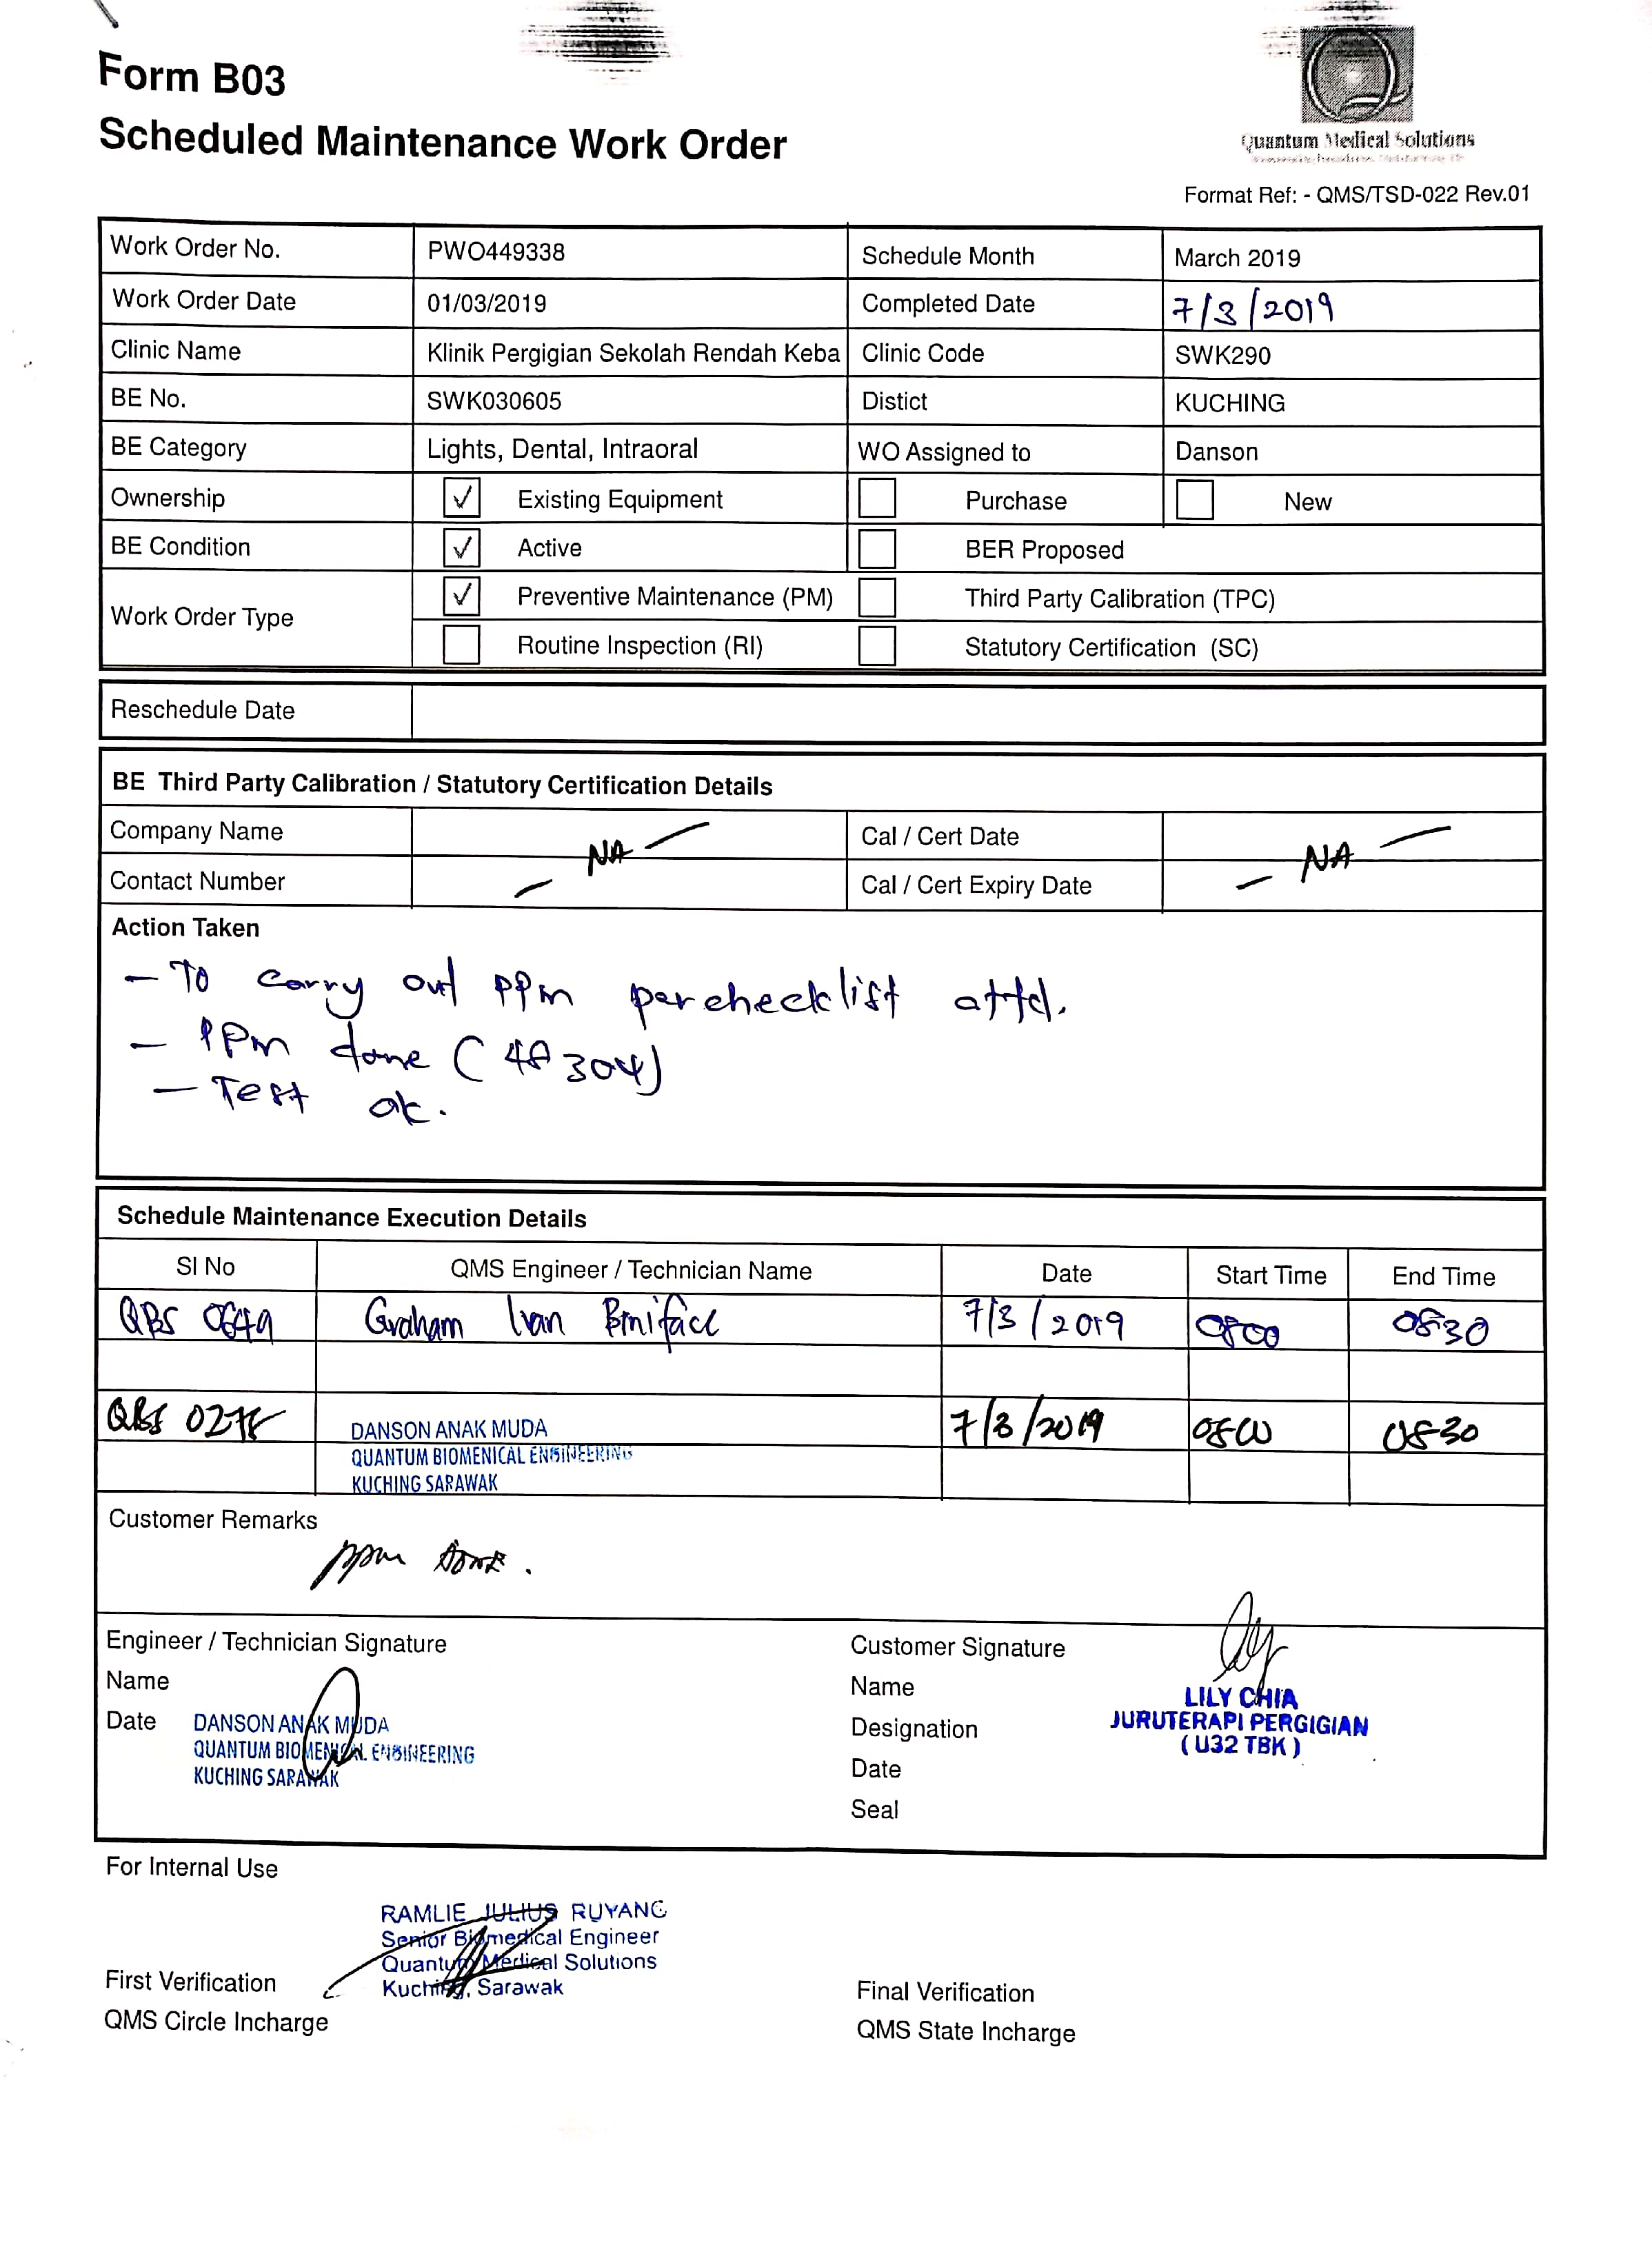 Form B03
Scheduled Maintenance Work Order
Quantum Medical Solutions
Format Ref: - QMS/TSD-022 Rev.01
Work Order No. PWO449338 Schedule Month March 2019
Work Order Date 01/03/2019 Completed Date 7/3/2019
Clinic Name Klinik Pergigian Sekolah Rendah Keba Clinic Code SWK290
BE No. SWK030605 Distict KUCHING
BE Category Lights, Dental, Intraoral WO Assigned to Danson
Ownership ✓ Existing Equipment Purchase New
BE Condition ✓ Active BER Proposed
Work Order Type ✓ Preventive Maintenance (PM) Third Party Calibration (TPC)
Routine Inspection (RI) Statutory Certification (SC)
Reschedule Date
BE Third Party Calibration / Statutory Certification Details
Company Name Cal / Cert Date
— NA — — NA —
Contact Number Cal / Cert Expiry Date
Action Taken
- To carry out PPm per checklist attd.
- PPm done
- Test ok.
Schedule Maintenance Execution Details
SI No QMS Engineer / Technician Name Date Start Time End Time
QBS 0649 Graham Ivan Boniface 7/3/2019 0800 0830
QBS DANSON ANAK MUDA 7/3/2019 0800 0830
QUANTUM BIOMENICAL ENGINEERING
KUCHING SARAWAK
Customer Remarks
ppm done.
Engineer / Technician Signature
Name
Date DANSON ANAK MUDA
QUANTUM BIOMENICAL ENGINEERING
KUCHING SARAWAK
Customer Signature
Name LILY CHIA
Designation JURUTERAPI PERGIGIAN
( U32 TBK )
Date
Seal
For Internal Use
RAMLIE JULIUS RUYANG
Senior Biomedical Engineer
Quantum Medical Solutions
Kuching, Sarawak
First Verification
QMS Circle Incharge
Final Verification
QMS State Incharge